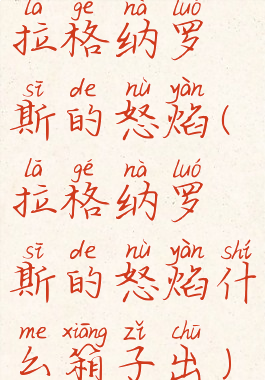 lā gé nà luó
拉格纳罗
sī de nù yàn
斯的怒焰(
lā gé nà luó
拉格纳罗
sī de nù yàn shí
斯的怒焰什
me xiāng zǐ chū
么箱子出)